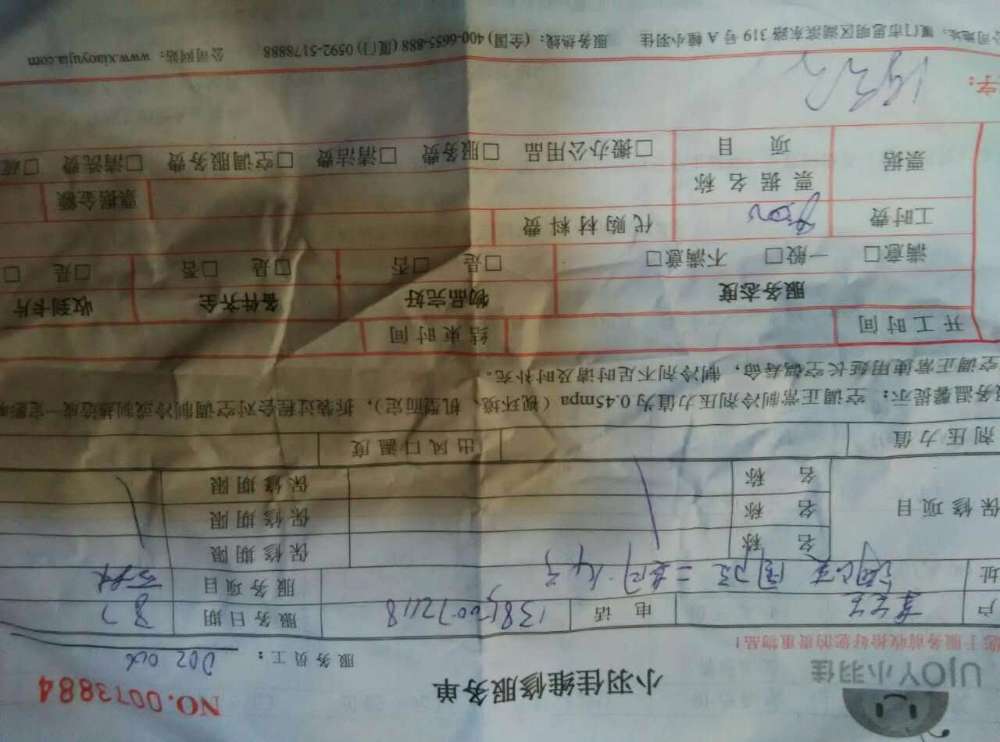 UJOY小羽佳
您！服务前收拾好您的贵重物品！
小羽佳维修服务单
NO.0073884
服务员工：
户 电话 服务日期 8.7
址 服务项目
保修项目 名称 保修期限
名称 保修期限
名称 保修期限
剂压力值 出风口温度
务温馨提示：空调正常制冷剂压力值为0.45mpa（视环境、机型而定），拆装过程会对空调制冷或制热造成一定影
空调正常使用延长空调寿命，制冷剂不足时请及时补充。
开工时间 结束时间
服务态度 物品完好 备件齐全 收到卡片
满意□ 一般□ 不满意□ □是 □否 □是 □否 □是 □
工时费 代购材料费
票据 票据名称 票据金额
项目 □搬办公用品 □服务费 □清洁费 □空调服务费 □清洗费 □
字：
公司地址：厦门市思明区湖滨东路319号A幢小羽佳 服务热线：(全国)400-6655-888 (厦门)0592-5178888 公司网站：www.xiaoyujia.com